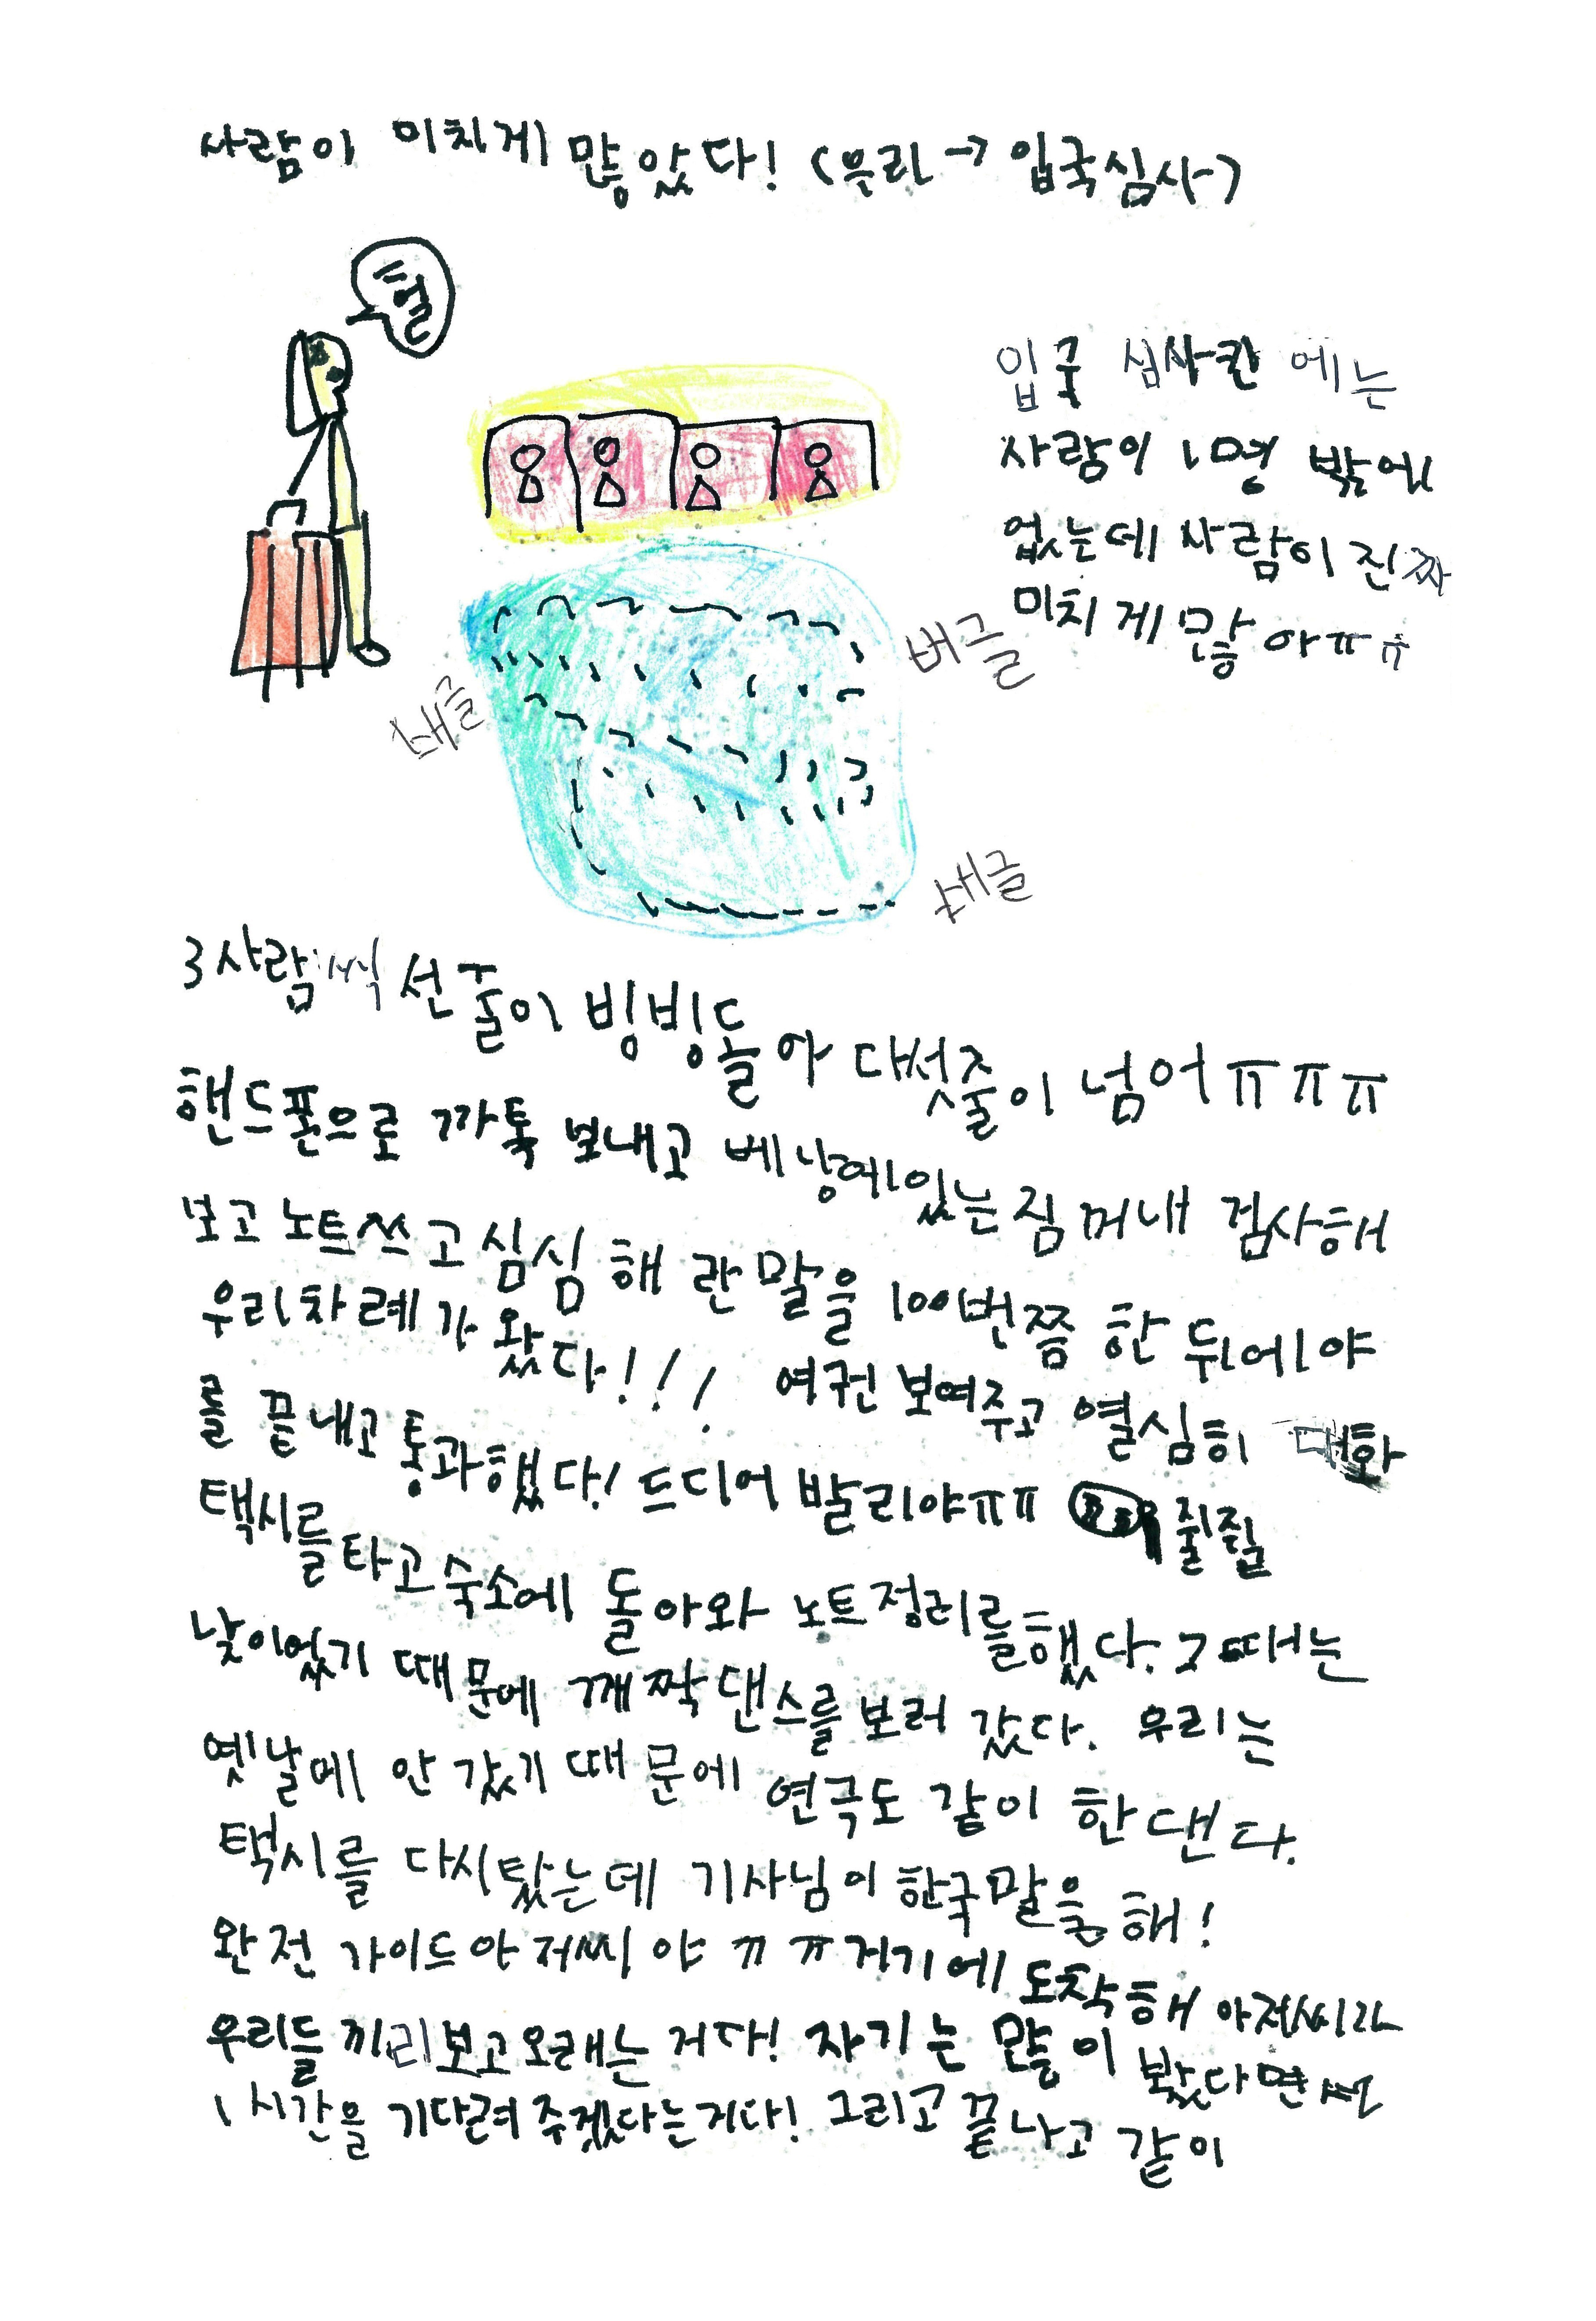 사람이 미치게 많았다! (은리→입국심사)
헐
입국 심사칸에는
사람이 1명 밖에
없는데 사람이 진짜
미치게 많아ㅠㅠ
버글
빼글
빼글
3사람씩 선 줄이 빙빙돌아 다섯줄이 넘어ㅠㅠㅠ
핸드폰으로 까톡 보내고 베낭에있는 짐 꺼내 검사해
보고 노트쓰고 심심해 란 말을 100번쯤 한 뒤에야
우리차례가 왔다!!! 여권 보여주고 열심히 대화
를 끝내고 통과했다! 드디어 발리야ㅠㅠ 줠줠
택시를 타고 숙소에 돌아와 노트정리를했다. 그때는
낮이었기 때문에 깨짝댄스를 보러 갔다. 우리는
옛날에 안 갔기 때문에 연극도 같이 한댄다.
택시를 다시탔는데 기사님이 한국말을 해!
완전 가이드아저씨야 ㅠㅠ 거기에 도착해 아저씨가
우리들끼리보고오래는 거다! 자기는 많이 봤다면서
1시간을 기다려주겠다는거다! 그리고 끝나고 같이